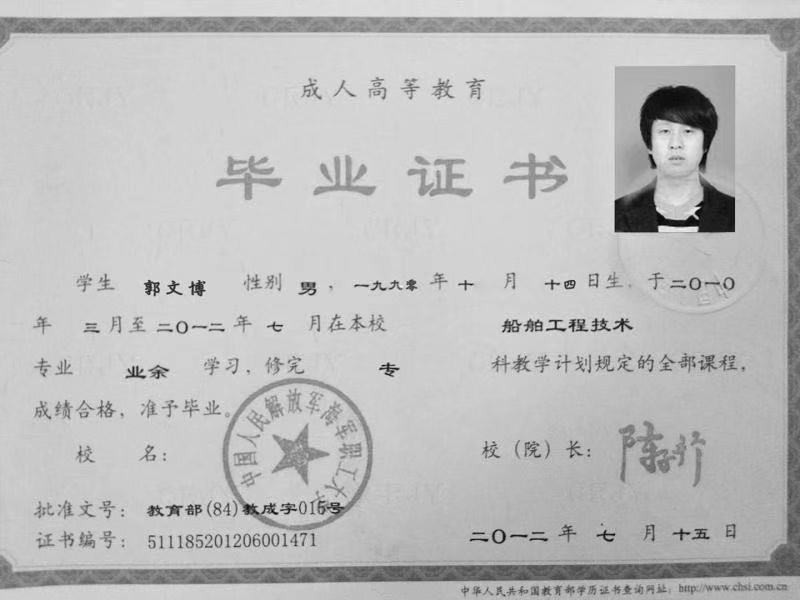 成人高等教育
毕业证书
学生 郭文博 性别 男，一九九零年十月十四日生，于二〇一〇
年三月至二〇一二年七月在本校 船舶工程技术
专业 业余 学习，修完 专 科教学计划规定的全部课程，
成绩合格，准予毕业。
校 名： 校（院）长：
中国人民解放军海军职工大学
批准文号：教育部(84)教成字015号
证书编号：511185201206001471 二〇一二年七月十五日
中华人民共和国教育部学历证书查询网址：http://www.chsi.com.cn